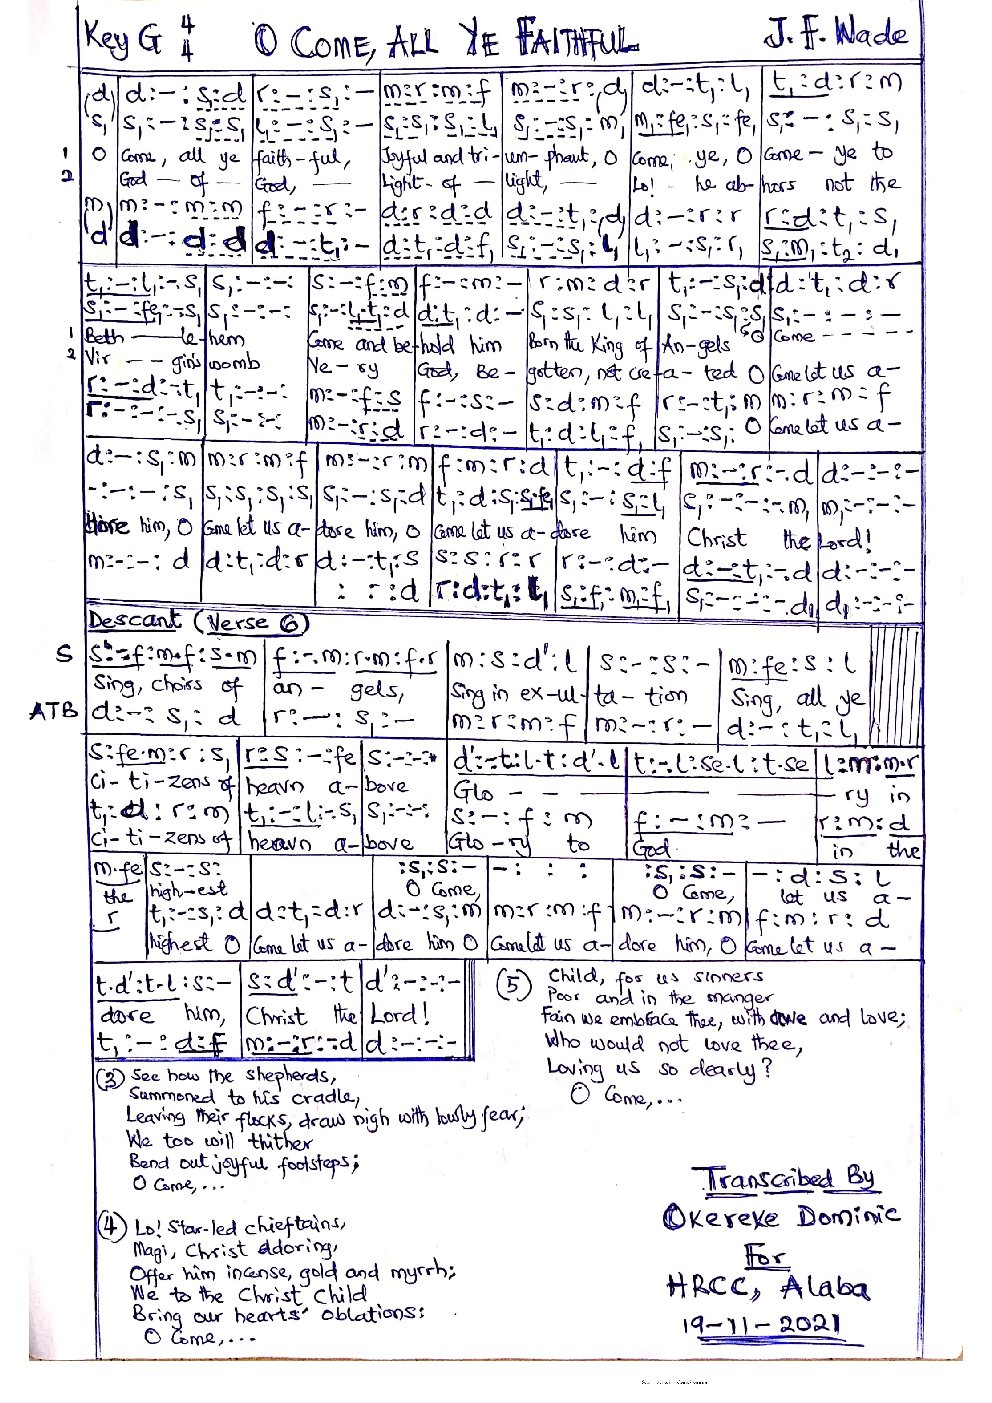 Key G 4/4 O COME, ALL YE FAITHFUL J. F. Wade
(d) d:-:s₁:d r:-:s₁:- m:r:m:f m:-:r:(d) d:-:t₁:l₁ t₁:d:r:m
s₁ s₁:-:s₁:s₁ l₁:-:s₁:- s₁:s₁:s₁:l₁ s₁:-:s₁:m₁ m₁:fe₁:s₁:fe₁ s₁:-:s₁:s₁
1 O Come, all ye faith-ful, Joyful and tri-um-phant, O Come, ye, O Come - ye to
2 God - of - God, - Light - of - light, - Lo! he ab-hors not the
(m) m:-:m:m f:-:r:- d:r:d:d d:-:t₁:(d) d:-:r:r r:d:t₁:s₁
(d) d:-:d:d d:-:t₁:- d:t₁:d:f₁ s₁:-:s₁:l₁ l₁:-:s₁:r₁ s₁:m₁:t₂:d₁
t₁:-:l₁:-s₁ s₁:-:-:- s:-:f:m f:-:m:- r:m:d:r t₁:-:s₁:d d:t₁:d:r
s₁:-:fe₁:-s₁ s₁:-:-:- s:-:l₁.t₁:d d:t₁:d:- s₁:s₁:l₁:l₁ s₁:-:s₁:s₁ s₁:-:-:-
1 Beth - le-hem Come and be-hold him Born the King of An-gels O Come - - - -
2 Vir - - gin's womb Ve-ry God, Be-gotten, not crea-ted O Come let us a-
r:-:d:-t₁ t₁:-:-:- m:-:f:s f:-:s:- s:d:m:f r:-:t₁:m m:r:m:f
r:-:-:-s₁ s₁:-:-:- m:-:r:d r:-:d:- t₁:d:l₁:f₁ s₁:-:s₁: O Come let us a-
d:-:s₁:m m:r:m:f m:-:r:m f:m:r:d t₁:-:d:f m:-:r:-d d:-:-:-
-:-:-:s₁ s₁:s₁:s₁:s₁ s₁:-:s₁:d t₁:d:s₁:s₁fe₁ s₁:-:s₁:l₁ s₁:-:-:-m₁ m₁:-:-:-
dore him, O Come let us a-dore him, O Come let us a-dore him Christ the Lord!
m:-:-:d d:t₁:d:r d:-:t₁:s s:s:r:r r:-:d:- d:-:t₁:-d d:-:-:-
: :r:d r:d:t₁:l₁ s₁:f₁:m₁:f₁ s₁:-:-:-d₁ d₁:-:-:-
Descant (Verse 6)
S s:-f:m.f:s.m f:-.m:r.m:f.r m:s:d':l s:-:s:- m:fe:s:l
Sing, choirs of an - gels, Sing in ex-ul-ta-tion Sing, all ye
ATB d:-:s₁:d r:-:s₁:- m:r:m:f m:-:r:- d:-:t₁:l₁
s:fe.m:r:s₁ r:s:-:fe s:-:-:- d':-t:l.t:d'.l t:-.l:se.l:t.se l:m:m.r
Ci-ti-zens of heavn a-bove Glo - - - - ry in
t₁:d:r:m t₁:-:l₁:-s₁ s₁:-:-:- s:-:f:m f:-:m:- r:m:d
Ci-ti-zens of heavn a-bove Glo-ry to God in the
m.fe s:-:s: :s₁:s:- -: : : :s₁:s:- -:d:s:l
the high-est O Come, O Come, let us a-
r t₁:-:s₁:d d:t₁:d:r d:-:s₁:m m:r:m:f m:-:r:m f:m:r:d
highest O Come let us a-dore him O Come let us a-dore him, O Come let us a-
t.d':t.l:s:- s:d':-:t d':-:-:-
dore him, Christ the Lord!
t₁:-:d:f m:-:r:-d d:-:-:-
(5) Child, for us sinners
Poor and in the manger
Fain we embrace thee, with awe and love;
Who would not love thee,
Loving us so dearly?
O Come,...
(3) See how the shepherds,
Summoned to his cradle,
Leaving their flocks, draw nigh with lowly fear;
We too will thither
Bend out joyful footsteps;
O Come,...
(4) Lo! Star-led chieftains,
Magi, Christ adoring,
Offer him incense, gold and myrrh;
We to the Christ Child
Bring our hearts' oblations:
O Come,...
Transcribed By
Okereke Dominic
For
HRCC, Alaba
19-11-2021